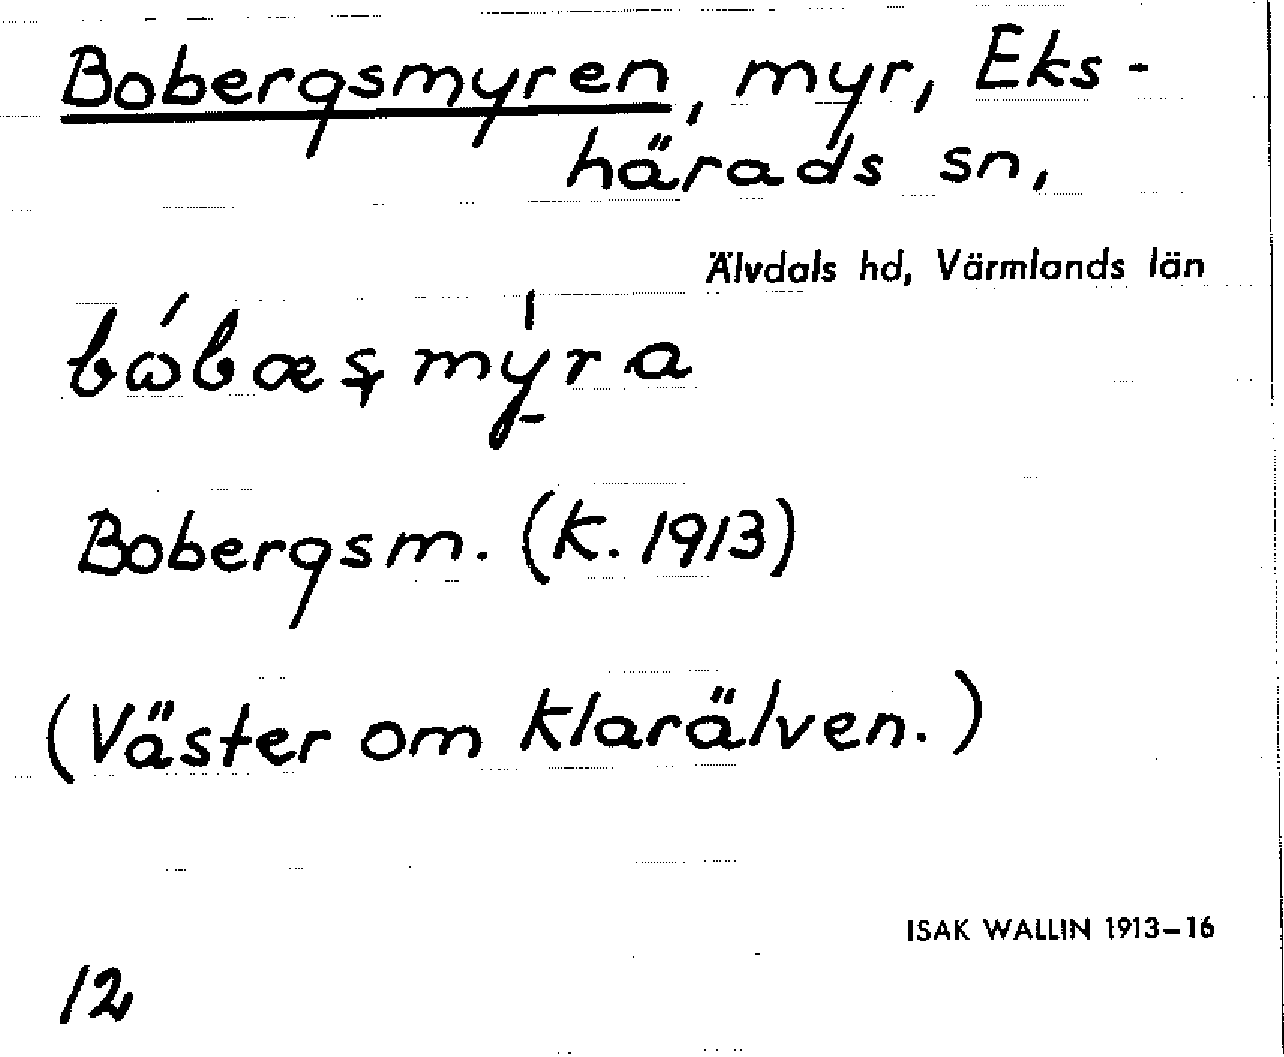 Bobergsmyren, myr, Eks-
härads sn,
Älvdals hd, Värmlands län
Bobergsm. (k. 1913)
(Väster om Klarälven.)
ISAK WALLIN 1913–16
12